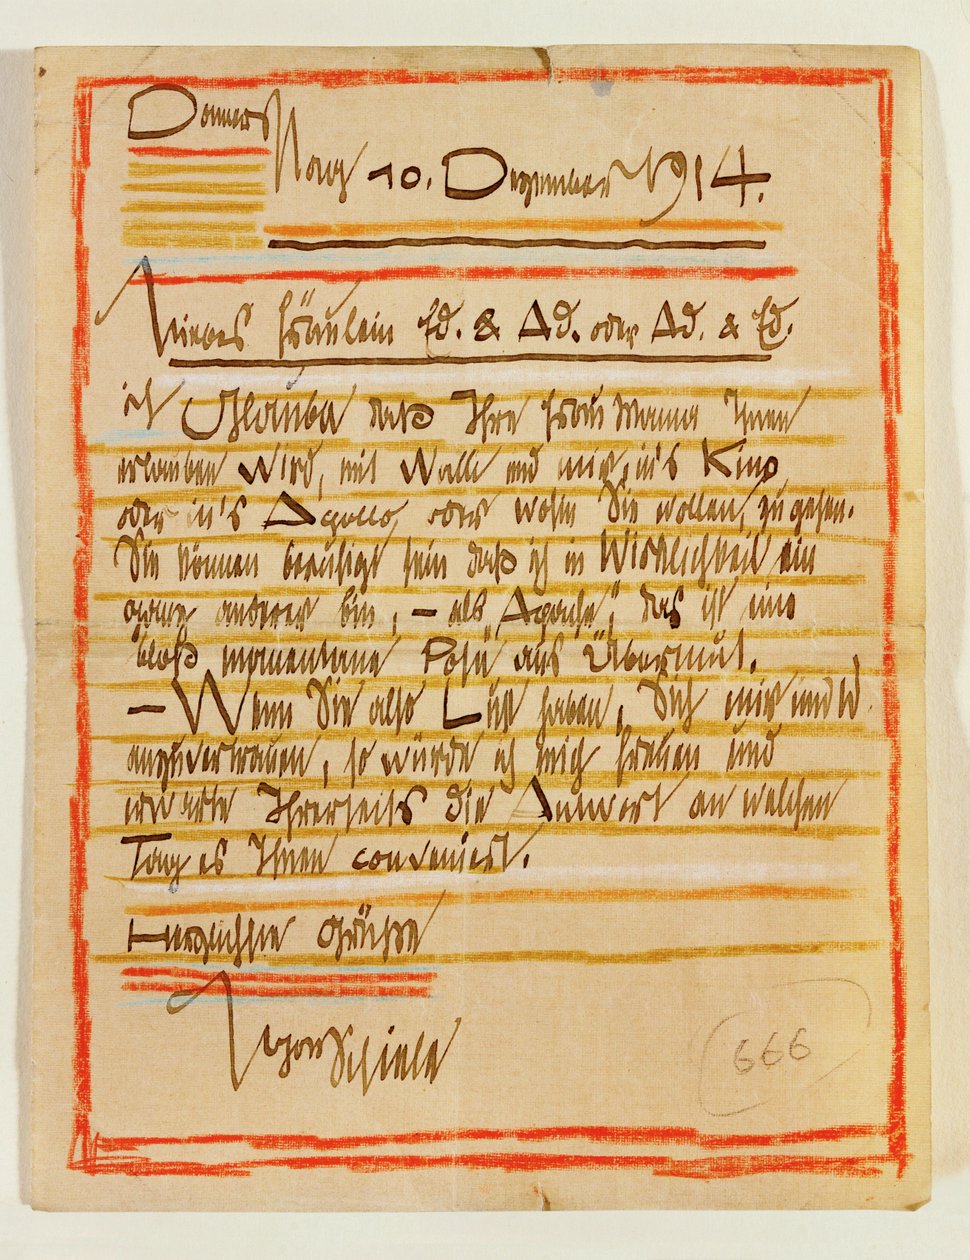 Donners
tag 10. Dezember 1914.
Liebes Fräulein Ed. & Ad. oder Ad. & Ed.
ich Glaube daß Ihre Frau Mama Ihnen
erlauben Wird, mit Walli und mir, in's Kino
oder in's Apollo, oder wohin Sie wollen, zu gehen.
Sie können beruhigt sein daß ich in Wirklichkeit ein
ganz anderer bin, – als „Apache", das ist eine
bloß momentane Pose aus Übermut.
– Wenn Sie also Lust haben, Sich mir und W.
anzuvertrauen, so würde ich mich freuen und
erwarte Ihrerseits die Antwort an welchen
Tag es Ihnen conveniert.
Herzlichste Grüße
Egon Schiele
666